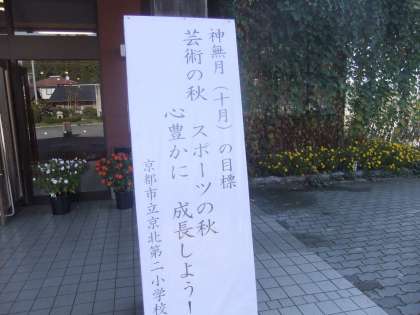 神無月（十月）の目標
芸術の秋　スポーツの秋
心豊かに　成長しよう！
京都市立京北第二小学校